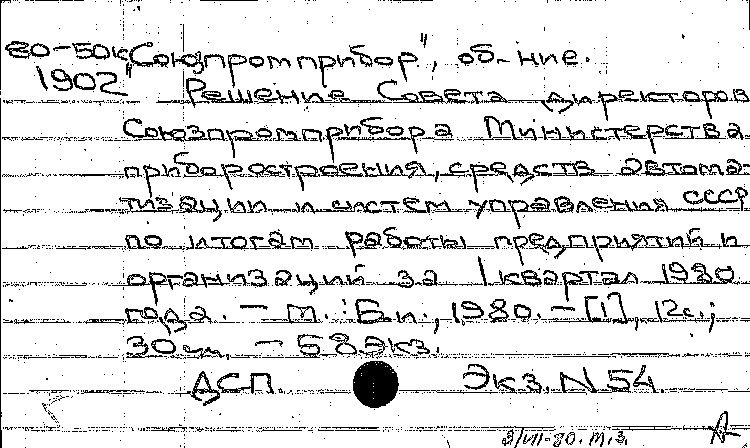 80-50к "Союзпромприбор", об-ние.
1902
Решение Совета директоров
Союзпромприбора Министерства
приборостроения, средств автома-
тизации и систем управления СССР
по итогам работы предприятий и
организаций за I квартал 1980
года. — М. : Б.и., 1980. — [1], 12с.;
30 см. — 58 экз.
ДСП. Экз. N 54.
3/VII-80. М.З.